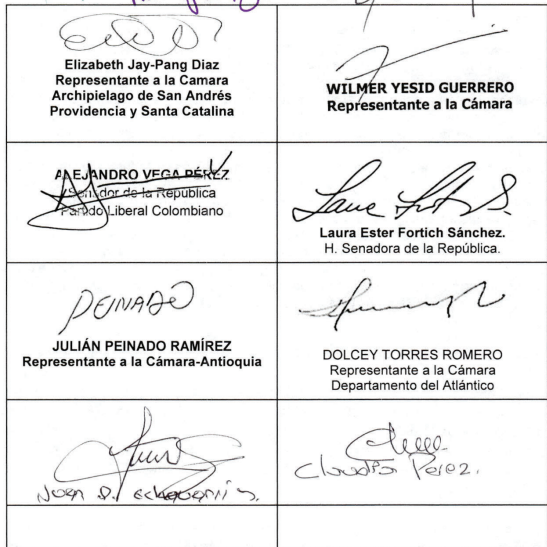 Elizabeth Jay-Pang Diaz
Representante a la Camara
Archipielago de San Andrés
Providencia y Santa Catalina
WILMER YESID GUERRERO
Representante a la Cámara
ALEJANDRO VEGA PÉREZ
Senador de la Republica
Partido Liberal Colombiano
Laura Ester Fortich Sánchez.
H. Senadora de la República.
PEINADO
JULIÁN PEINADO RAMÍREZ
Representante a la Cámara-Antioquia
DOLCEY TORRES ROMERO
Representante a la Cámara
Departamento del Atlántico
Claudia Perez.